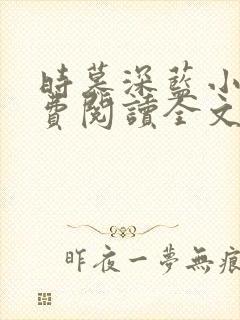 時暮深藍小
費閱讀全文
昨夜一夢無痕